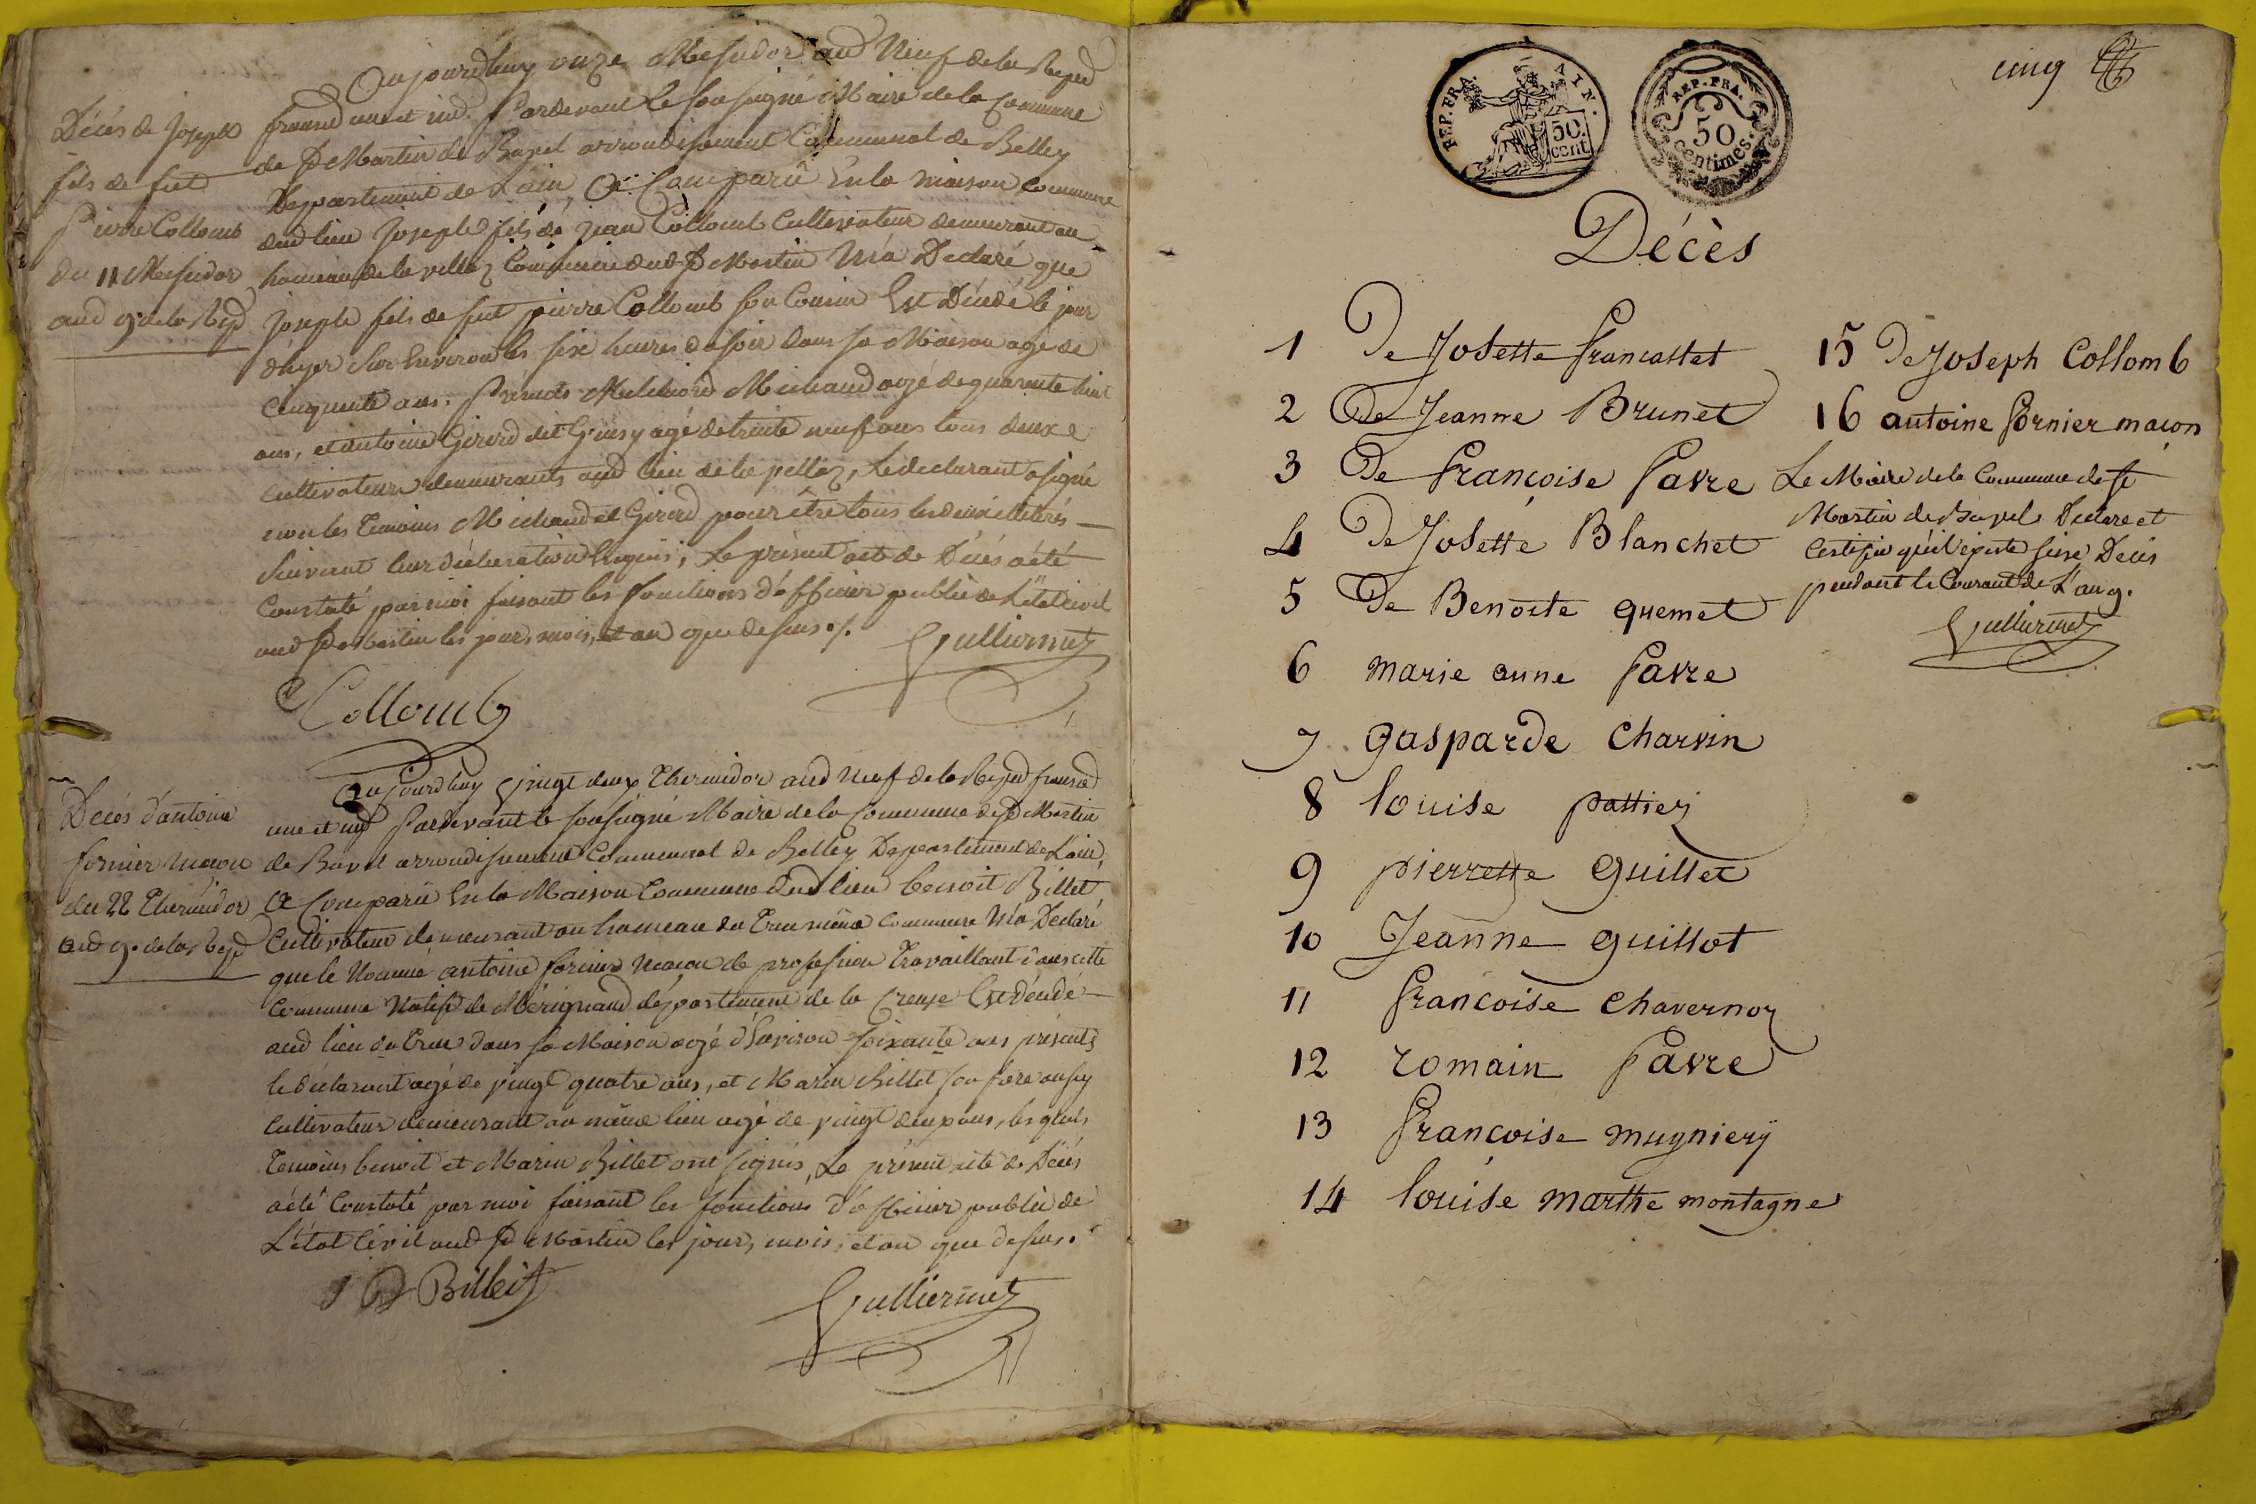 Décès de Joseph
fils de feut
Pierre Collomb
du 11 Messidor
and 9e de la Repd
Oujourdhuy onze Messidor and Neuf de la Repd
fransd une et ind. Pardevant le soussigné Maire de la Commune
de St Martin de Bavel arrondissement Communal de Belley
Departement de Lain, a Comparû En la maison commune
dud lieu Joseph fils de jean Collomb Cultivateur demeurant au
hameau de la vellaz Commune dud St Martin M'a Declaré que
Joseph fils de feut pierre Collomb son Cousin Est Décédé le jour
d'hyer sur Environ les six heures du soir dans sa Maison agé de
Cinquente ans. Présents Melchiord Michaud agé de quarente huit
ans, et antoine Girerd dit agé de trente neuf ans tous deux
cultivateurs demeurants aud lieu de la vellaz, le declarant a signé
non les Temoins Michaud et Girerd pour être tous les deux illiterés
suivant leur déclaration Enquis; Le présent acte de Décés a été
Constaté par moi faisant les fonctions d'officier public de L'état civil
aud St Martin les jour, mois, et an que dessus ./.
Gulliermet
Collomb
Décès d'antoine
fornier macon
du 22 Thermidor
and 9e de la Repd
Aujourdhuy vingt deux Thermidor and Neuf de la Repd fransd
une et ind Pardevant le soussigné Maire de la Commune de St Martin
de Bavel arrondissement Communal de Belley Departement de Lain,
a Comparû En la Maison Commune dud lieu benoit Billet
Cultivateur demeurant au hameau du même Commune M'a Declaré
que le Nommé antoine fornier macon de profession Travaillant dans cette
Commune Natif de Mérignand département de la Creuse Est décédé
aud lieu du dans sa Maison agé d'Environ soixante ans présents
le déclarant agé de vingt quatre ans, et Marin Billet son frère aussy
Cultivateur demeurant au même lieu agé de vingt deux ans, les quels
Temoins benoit et Marin Billet ont signés, Le présent acte de Décés
a été Constaté par moi faisant les fonctions d'officier public de
L'état Civil aud St Martin les jour, mois, et an que dessus.
B Billet
Gulliermet
cinq
REP. FRA. AIN.
50 cent.
REP. FRA.
50
centimes.
Décès
1 De Josette francattet
2 De Jeanne Brunet
3 De françoise favre
4 De Josette Blanchet
5 De Benoite quemet
6 marie anne favre
7 gasparde charvin
8 louise pattier
9 pierrette guillet
10 Jeanne guillot
11 francoise chavernoz
12 romain favre
13 françoise mugniery
14 louise marthe montagne
15 De Joseph Collomb
16 antoine fornier maçon
Le Maire de la Commune de St
Martin de Bavel Declare et
Certifie qu'il existe seize Décés
pendant le Courant de L'an 9.
Gulliermet